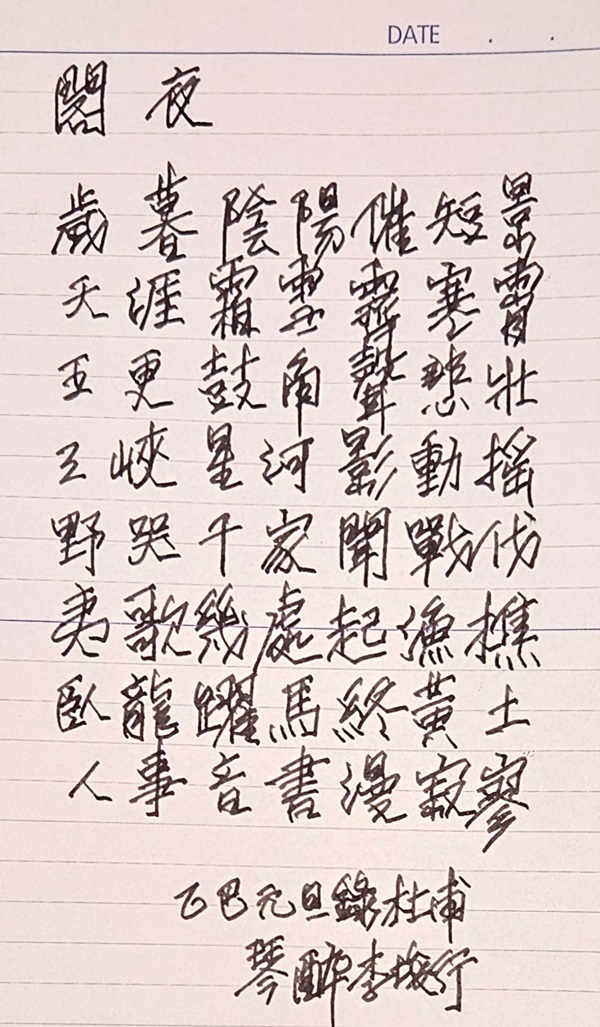 DATE . .
閣夜
歲暮陰陽催短景
天涯霜雪霽寒霄
五更鼓角聲悲壯
三峽星河影動搖
野哭千家聞戰伐
夷歌幾處起漁樵
臥龍躍馬終黃土
人事音書漫寂寥
乙巳元旦錄杜甫
琴醉李 行